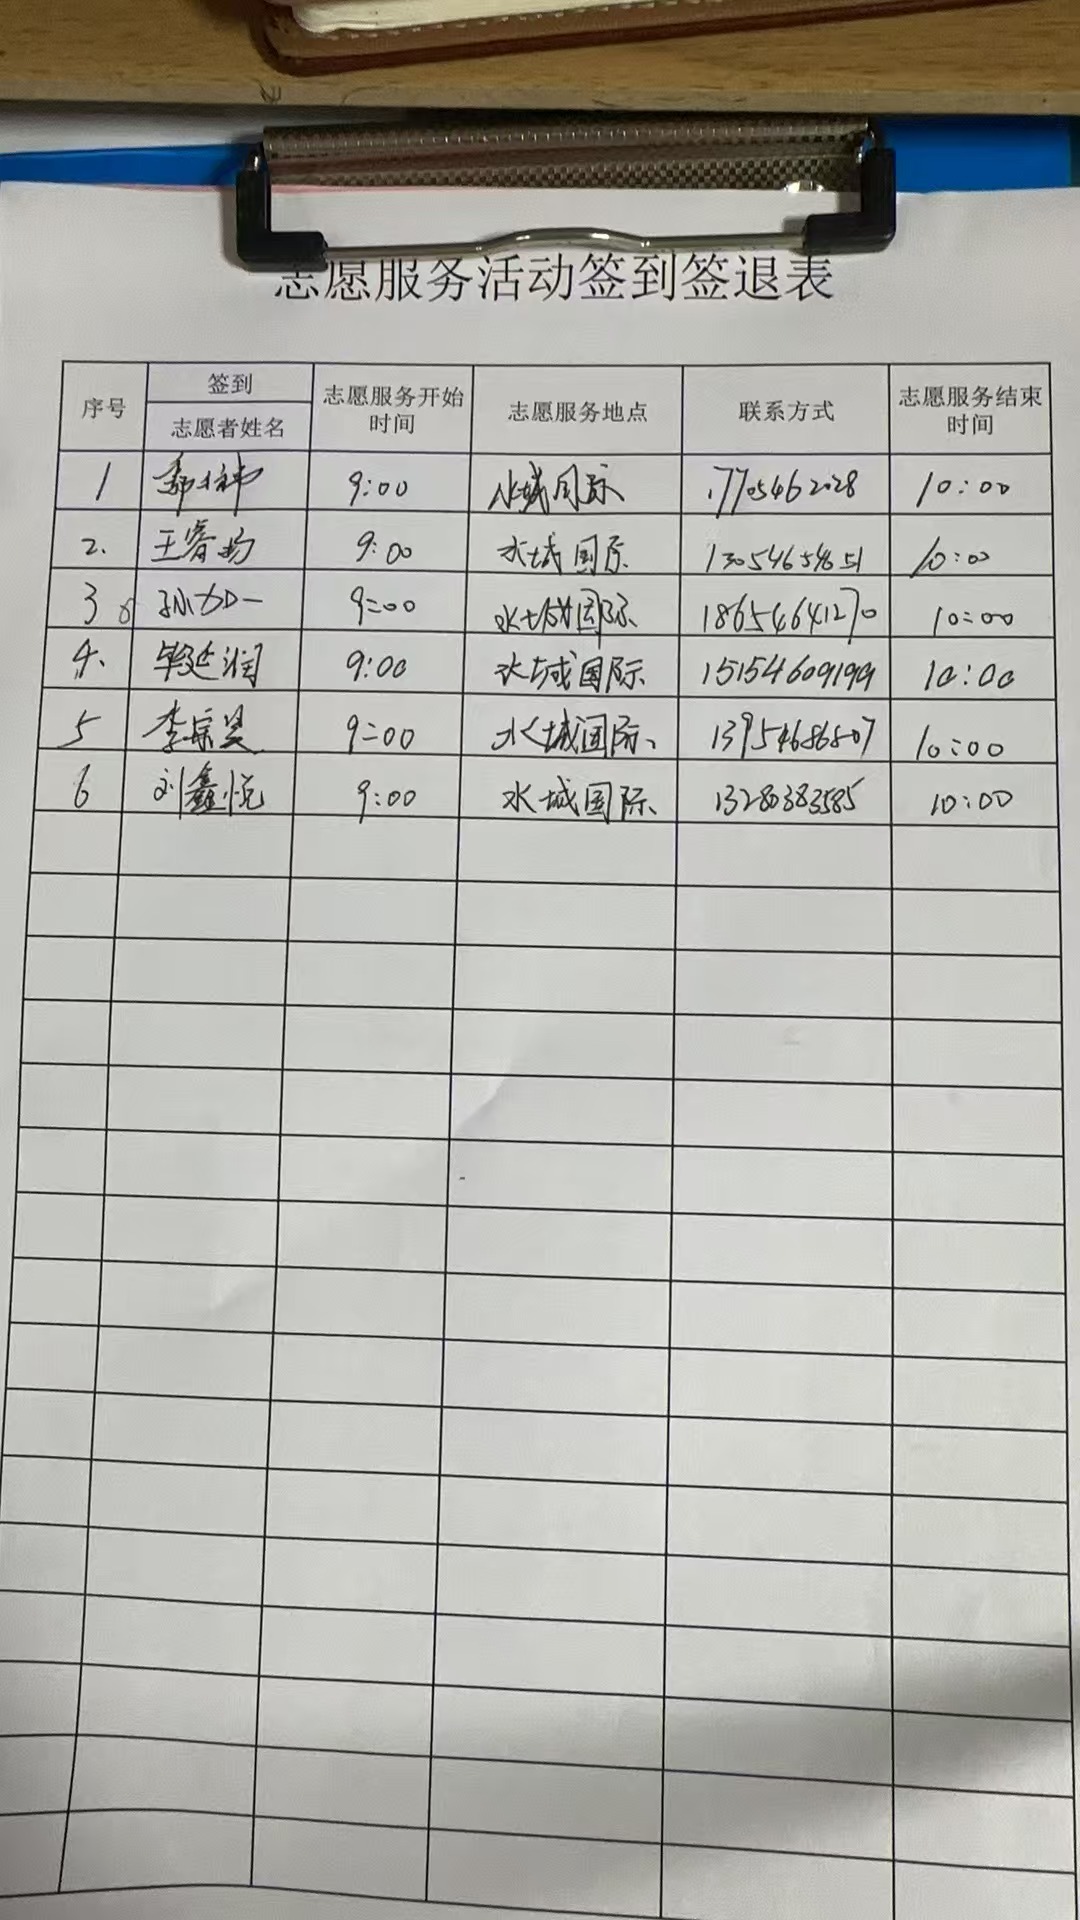 志愿服务活动签到签退表
序号 签到 志愿者姓名 志愿服务开始时间 志愿服务地点 联系方式 志愿服务结束时间
1 9:00 水城国际 10:00
2. 王睿扬 9:00 水城国际 13054654651 10:00
3 孙加一 9:00 水城国际 18654641270 10:00
4. 毕延润 9:00 水城国际 15154609199 10:00
5 李宗昊 9:00 水城国际 13954686807 10:00
6 刘鑫悦 9:00 水城国际 13280383585 10:00